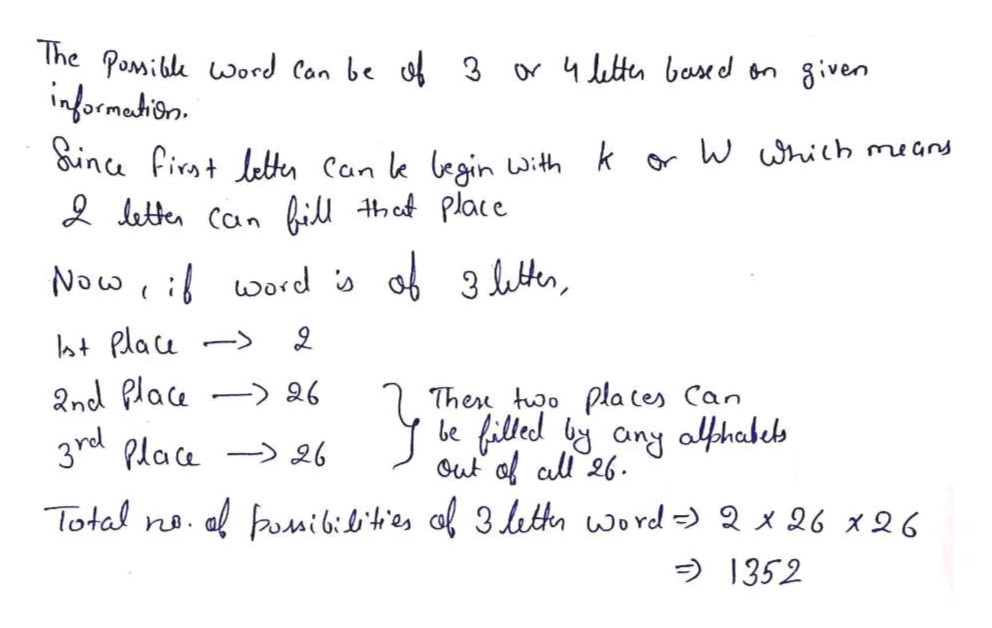 The Possible word can be of 3 or 4 letter based on given
information.
Since first letter can be begin with k or W which means
2 letter can fill that place
Now, if word is of 3 letter,
1st Place -> 2
2nd Place -> 26
3rd Place -> 26
} These two places can
be filled by any alphabets
out of all 26.
Total no. of possibilities of 3 letter word => 2 x 26 x 26
=> 1352